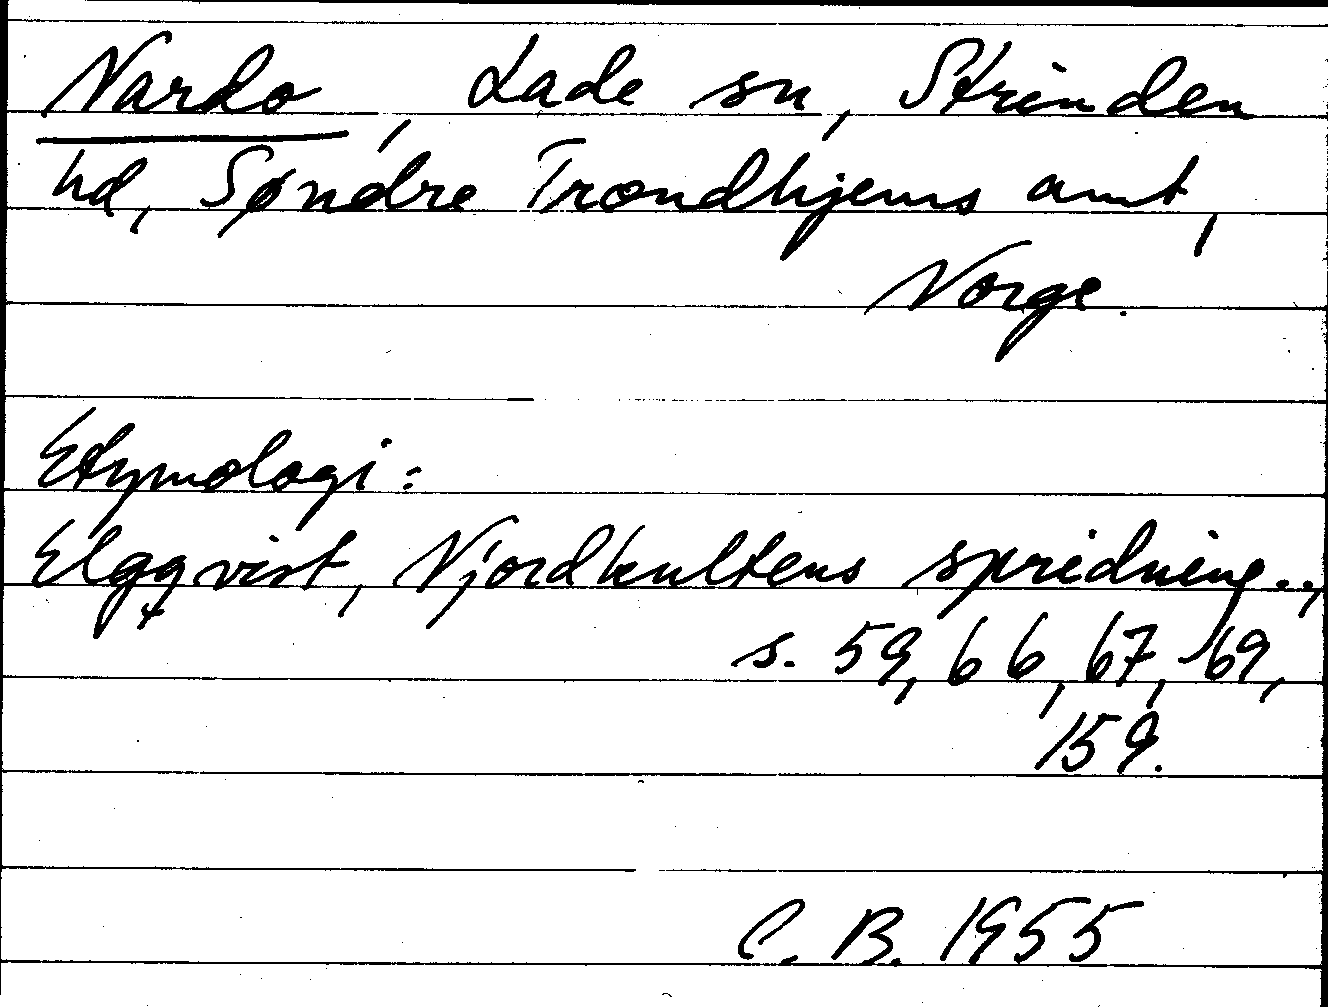 Nardo, Lade sn, Strinden
hd, Søndre Trondhjems amt,
Norge.
Etymologi:
Elgqvist, Njordkultens spridning..,
s. 59, 66, 67, 69,
159.
C. B. 1955